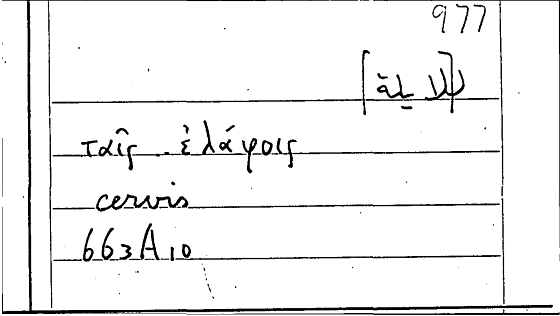 977
[للايلة]
ταῖς .. ἐλάφοις
cervis
663A10